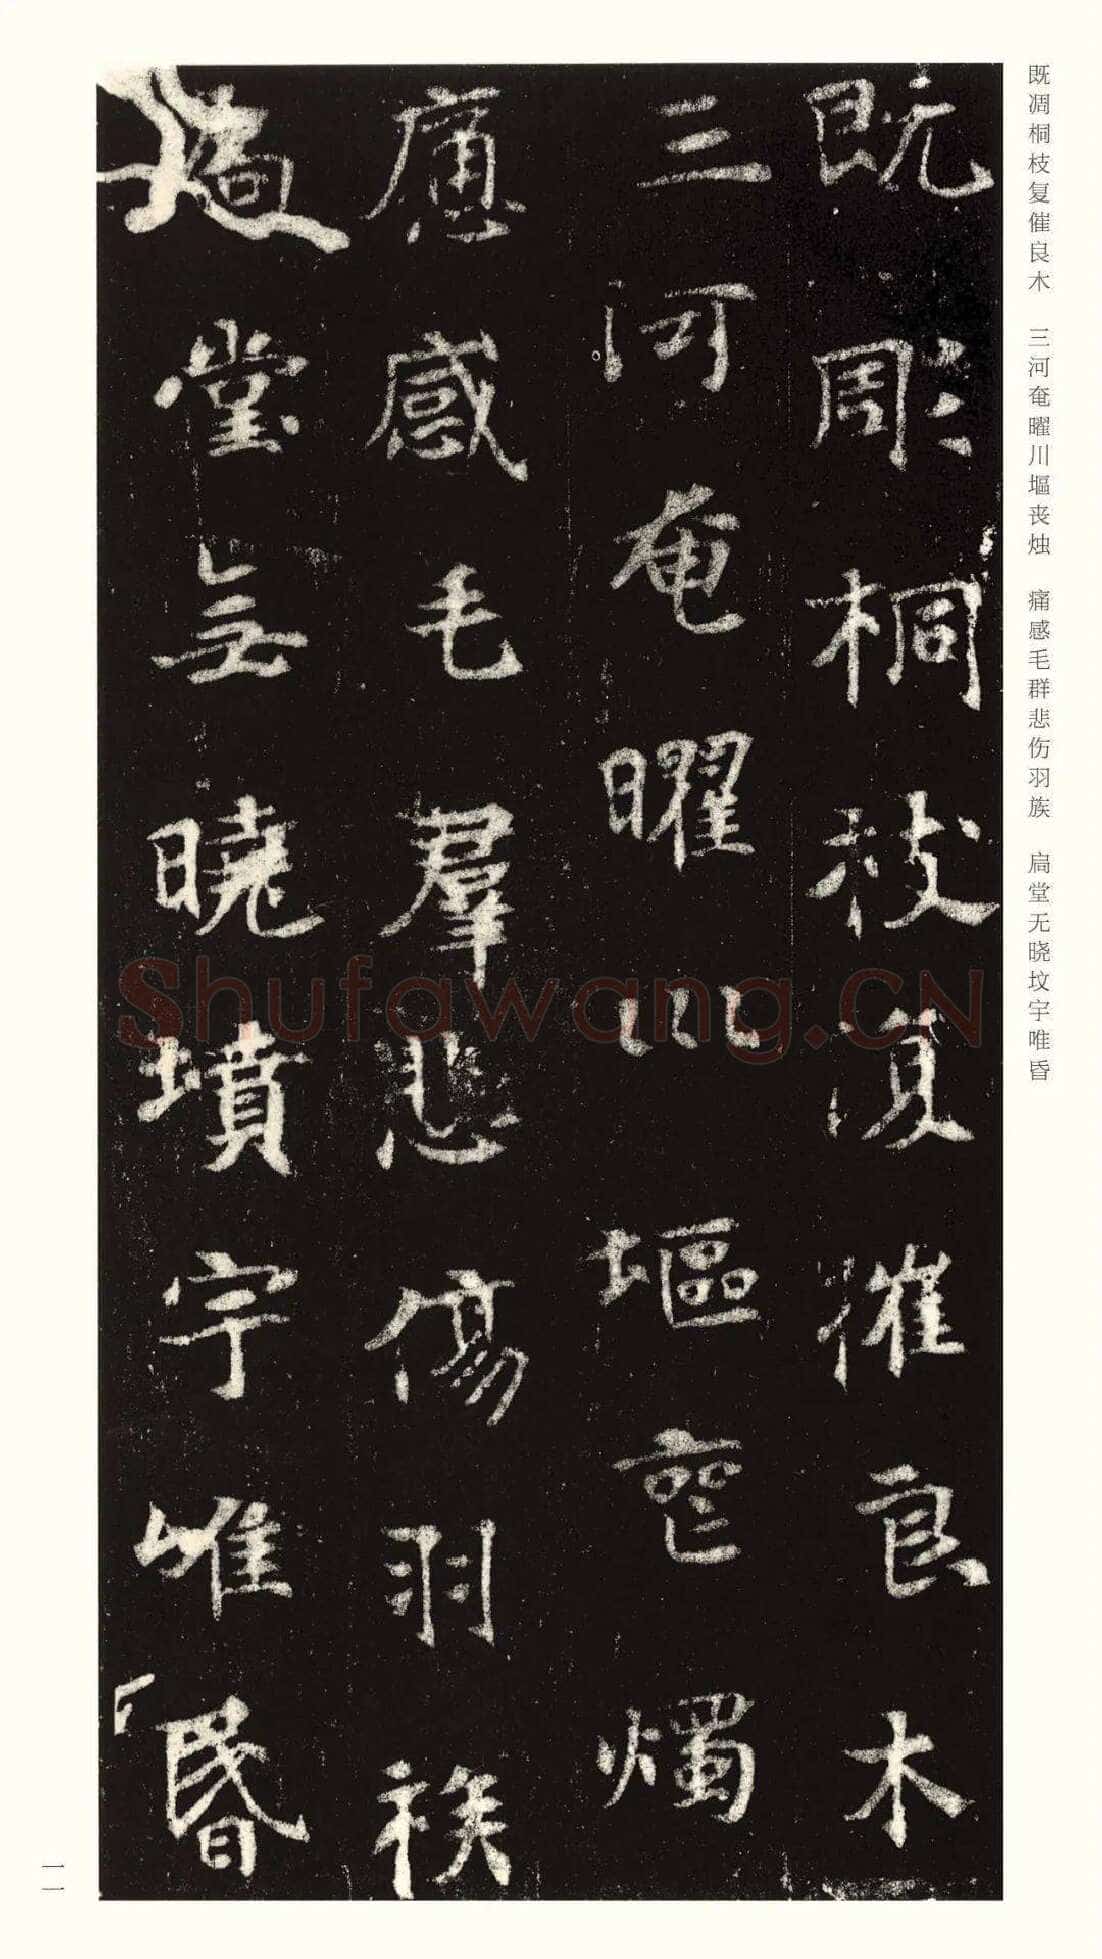 既凋桐枝复催良木 三河奄曜川塸丧烛 痛感毛群悲伤羽族 扃堂无晓坟宇唯昏
既彫桐枝復摧良木
三河奄曜川塸喪燭
痛感毛羣悲傷羽族
扃堂無曉墳宇唯昏
Shufawang.CN
一一